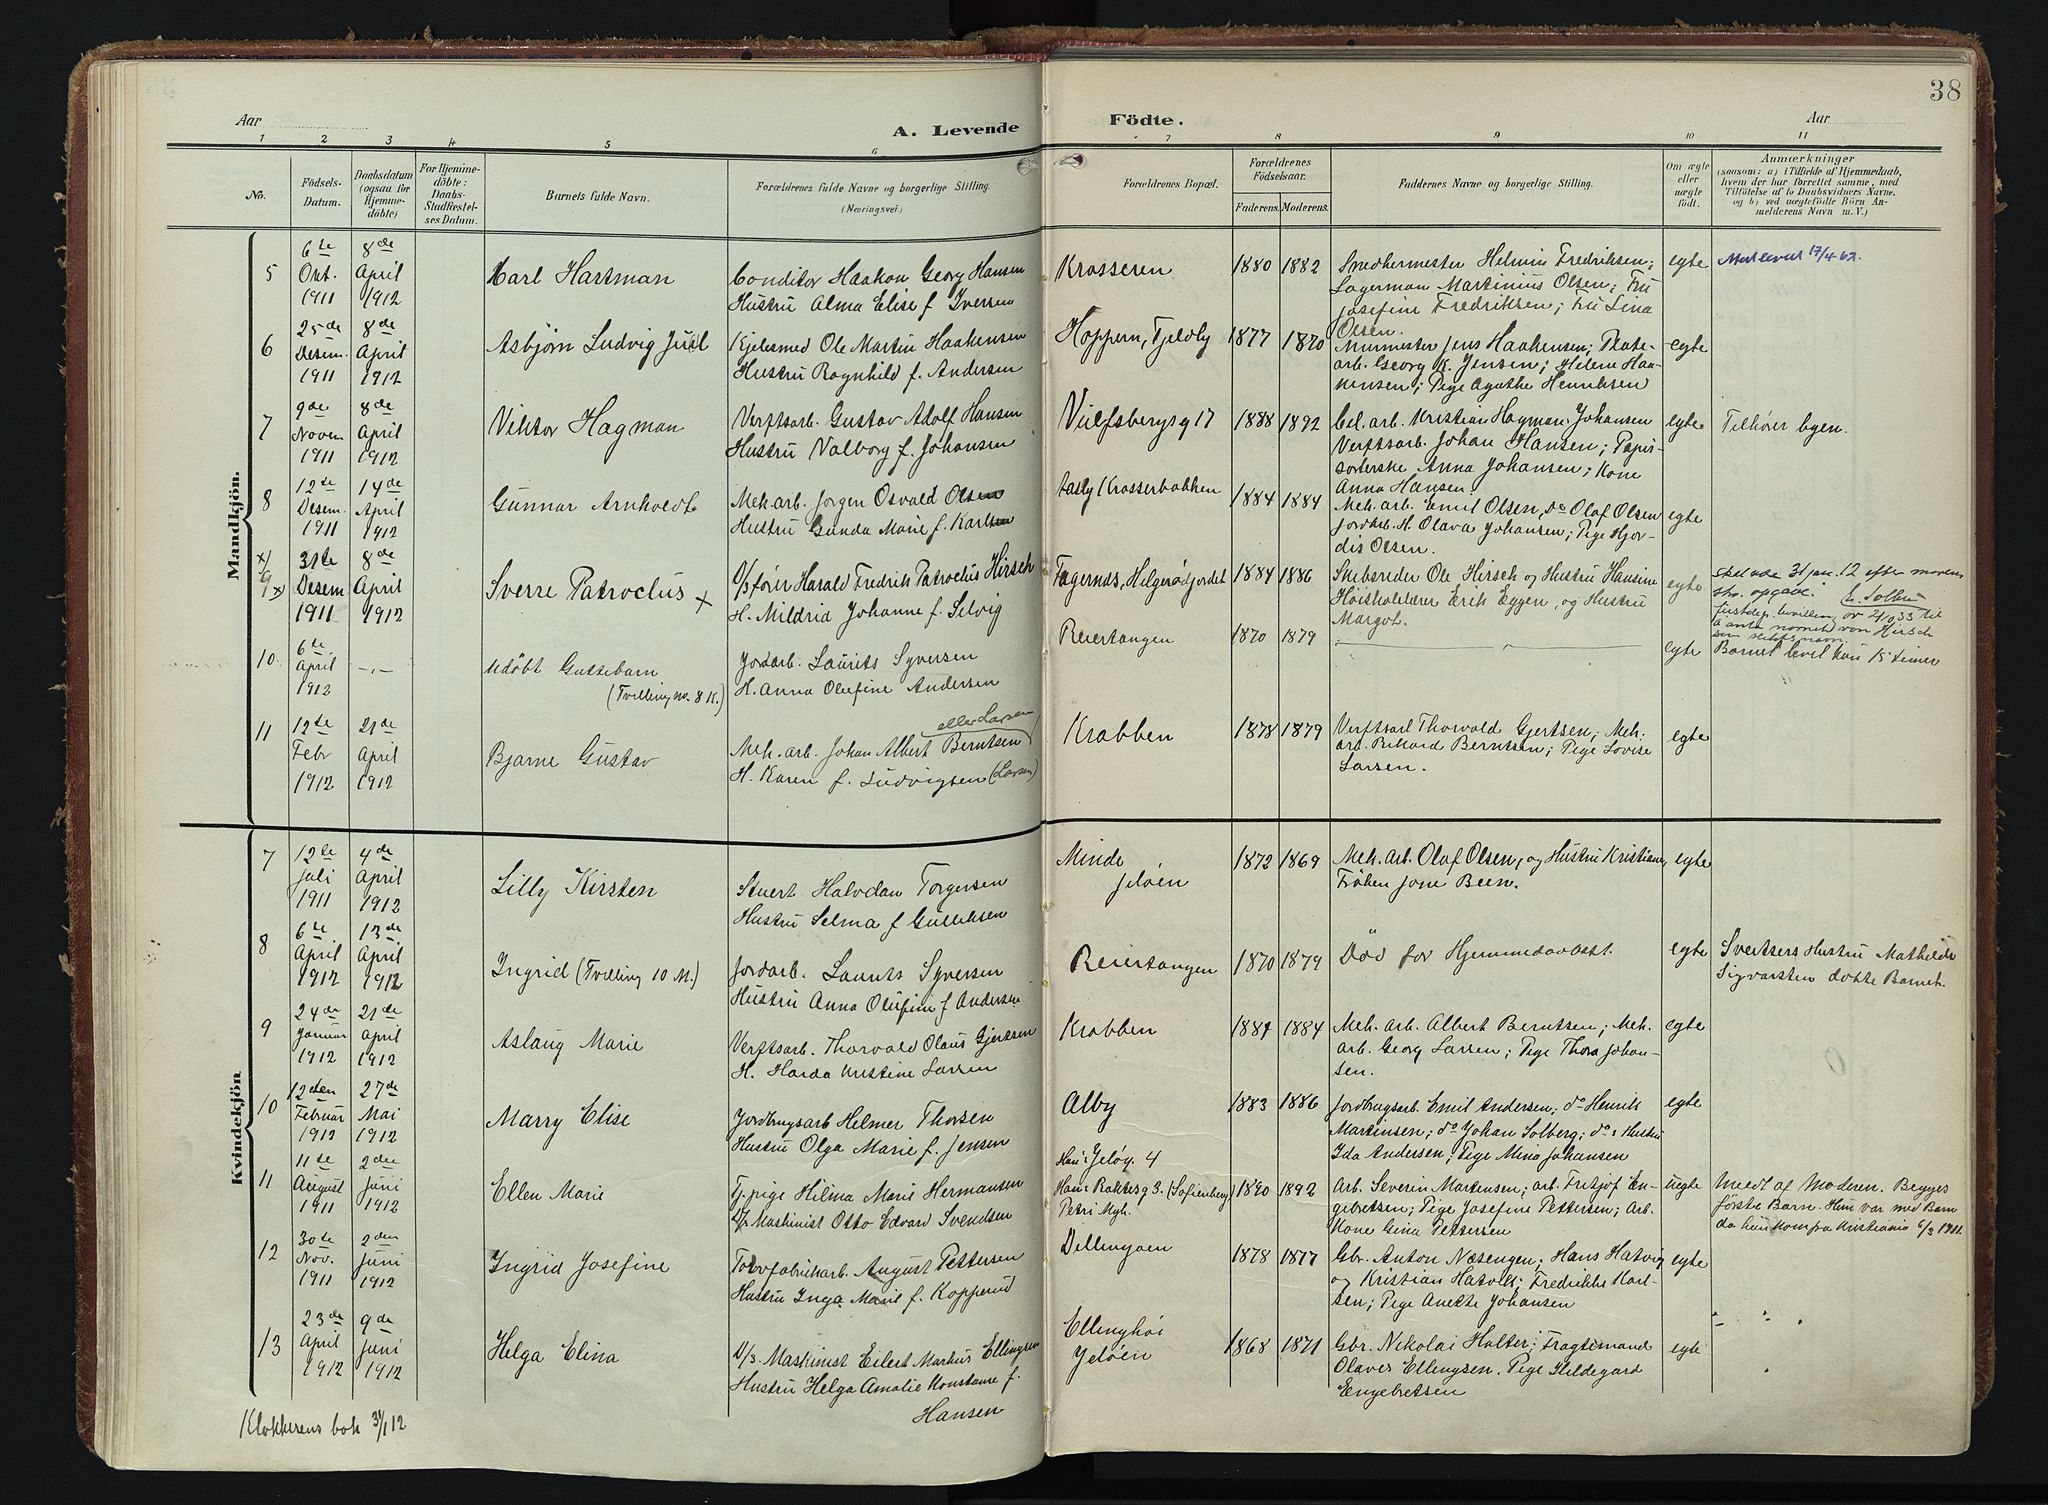 38
Aar
A. Levende
Födte.
Aar
1 2 3 4 5 6 7 8 9 10 11
No.
Födsels-Datum.
Daabsdatum (ogsaa för Hjemmedöbte)
For Hjemmedöbte: Daabs-Stadfestelses Datum.
Barnets fulde Navn.
Forældrenes fulde Navne og borgerlige Stilling.
(Næringsvei.)
Forældrenes Bopæl.
Forældrenes Födselsaar.
Faderens. Moderens.
Faddernes Navne og borgerlige Stilling.
Om ægte eller uægte födt.
Anmærkninger
(saasom: a) i Tilfælde af Hjemmedaab,
hvem der har forrettet samme, med
Tilföielse af to Daabsvidners Navne.
og b) ved uægtefödte Börn An-
melderens Navn m. V.)
Mandkjön.
5
6te Okt. 1911
8de April 1912
Karl Hartman
Conditor Haakon Georg Hansen
Hustru Alma Elise f. Iversen
Krosseren
1880 1882
Snedkermester Helmin Fredriksen;
Lagerman Martinius Olsen; Fru
Josefine Fredriksen; Fru Lina
Olsen.
egte
17/4-62.
6
25de Desem. 1911
8de April 1912
Asbjørn Ludvig Juel
Kjelesmed Ole Martin Haakensen
Hustru Ragnhild f. Andersen
Hoppern, Fjeldby
1877 1870
Murmester Jens Haakensen; Plate-
arb. Georg K. Jensen; Helene Haa-
kensen; Pige Agathe Henriksen
egte
7
9de Novem 1911
8de April 1912
Viktor Hagman
Verftsarb. Gustav Adolf Hansen
Hustru Valborg f. Johansen
Vulfsbergsg 17
1888 1892
Cel. arb. Kristian Hagman Johansen
Verftsarb. Johan Hansen; Papir-
sorterske Anna Johansen; Kone
Anna Hansen.
egte
Tilhører byen.
8
12te Desem. 1911
14de April 1912
Gunnar Arnholdt
Mek. arb. Jørgen Osvald Olsen
Hustru Gunda Marie f. Karlsen
Aasly Krosserbakken
1884 1884
Mek. arb. Emil Olsen, Do Olaf Olsen
Jordarb. H. Olava Johansen; Pige Hjør-
dis Olsen.
egte
x/
9 x
31te Desem 1911
8de April 1912
Sverre Patroclus x
D/S fører Harald Fredrik Patroclus Hirsch
H. Mildrid Johanne f. Selvig
Fagernes, Helgerødjordet
1884 1886
Skibsreder Ole Hirsch og Hustru Hansine
Høiskolelærer Erik Eggen, og Hustru
Margot.
egte
31 jan. 12 efter morens
skr. opgave.
av 4/10 33 til
å anta navnet von Hirsch
som slektsnavn.
10
6te April 1912
-"-
Udöbt Guttebarn
(Tvilling no. 8 K.)
Jordarb. Laurits Syversen
H. Anna Olufine Andersen
Reiertangen
1870 1879
"
egte
Barnet levet kun 15 timer
11
12te Febr 1912
21de April 1912
Bjarne Gustav
eller Larsen
Mek. arb. Johan Albert Berntsen
H. Karen f. Ludvigsen (Larsen)
Krabben
1878 1879
Verftsarb Thorvald Gjertsen, Mek.
arb. Rikard Berntsen; Pige Lovise
Larsen.
egte
Kvindekjön
7
12te Juli 1911
4de April 1912
Lilly Kirsten
Stuert Halvdan Torgersen
Hustru Selma f Gulliksen
Minde
Jeløen
1872 1869
Mek. arb. Olaf Olsen, og Hustru Kristiane,
Frøken Jone Been.
egte
8
6te April 1912
13de April 1912
Ingrid (Tvilling 10 M.)
Jordarb. Laurits Syversen
Hustru Anna Olufine f Andersen
Reiertangen
1870 1879
Död før Hjemmedaabst.
egte
Hustru Mathilde
Sigvartsen døbte Barnet.
9
24de Januar 1912
21de April 1912
Aslaug Marie
Verftsarb. Thorvald Olaus Gjertsen
H. Harda Kristine Larsen
Krabben
1884
Mek. arb. Albert Berntsen; Mek.
arb. Georg Larsen; Pige Thora Johan-
sen.
egte
10
12den Februar 1912
27de Mai 1912
Marry Elise
Jordbrugsarb Helmer Thorsen
Hustru Olga Marie f. Jensen
Alby
1883 1886
Jordbrugsarb. Emil Andersen; do Henrik
Martinsen; do Johan Solberg; do s Hustru
Ida Andersen; Pige Mina Johansen
egte
11
11te August 1911
2den Juni 1912
Ellen Marie
Tj. pige Hilma Marie Hermansen
D/S Maskinist Otto Edvard Svendsen
Hun: Jeløg. 4
Han: Bakkeg 3. (Sofienberg)
Petri Mgh.
1890 1892
Arb. Severin Martensen; arb. Fritjof En-
gebretsen; Pige Josefine Pettersen; Arb.
Kone Gina Pettersen
uegte
Meldt af Moderen. Begges
förste Barn. Hun var med Barn
da hun kom fra Kristiania 6/3 1911.
12
30te Nov. 1911
2den Juni 1912
Ingrid Josefine
Torvfabrikarb. August Pettersen
Hustru Inga Marie f. Kopperud
Dillingøen
1878 1877
Gbr. Anton Næsengen; Hans Hatvig
og Kristian Hatvik; Fredrikke Karl-
sen; Pige Anette Johansen
egte
13
23de April 1912
9de Juni 1912
Helga Elina
D/S. Maskinist Eilert Markus Ellingsen
Hustru Helga Amalie Konstanse f.
Hansen
Ellinghøi
Jeløen
1868 1871
Gbr. Nikolai Holter; Fragtemand
Olaves Ellingsen. Pige Hildegard
Engebretsen
egte
" " "
Klokkerens bok 31/1 12